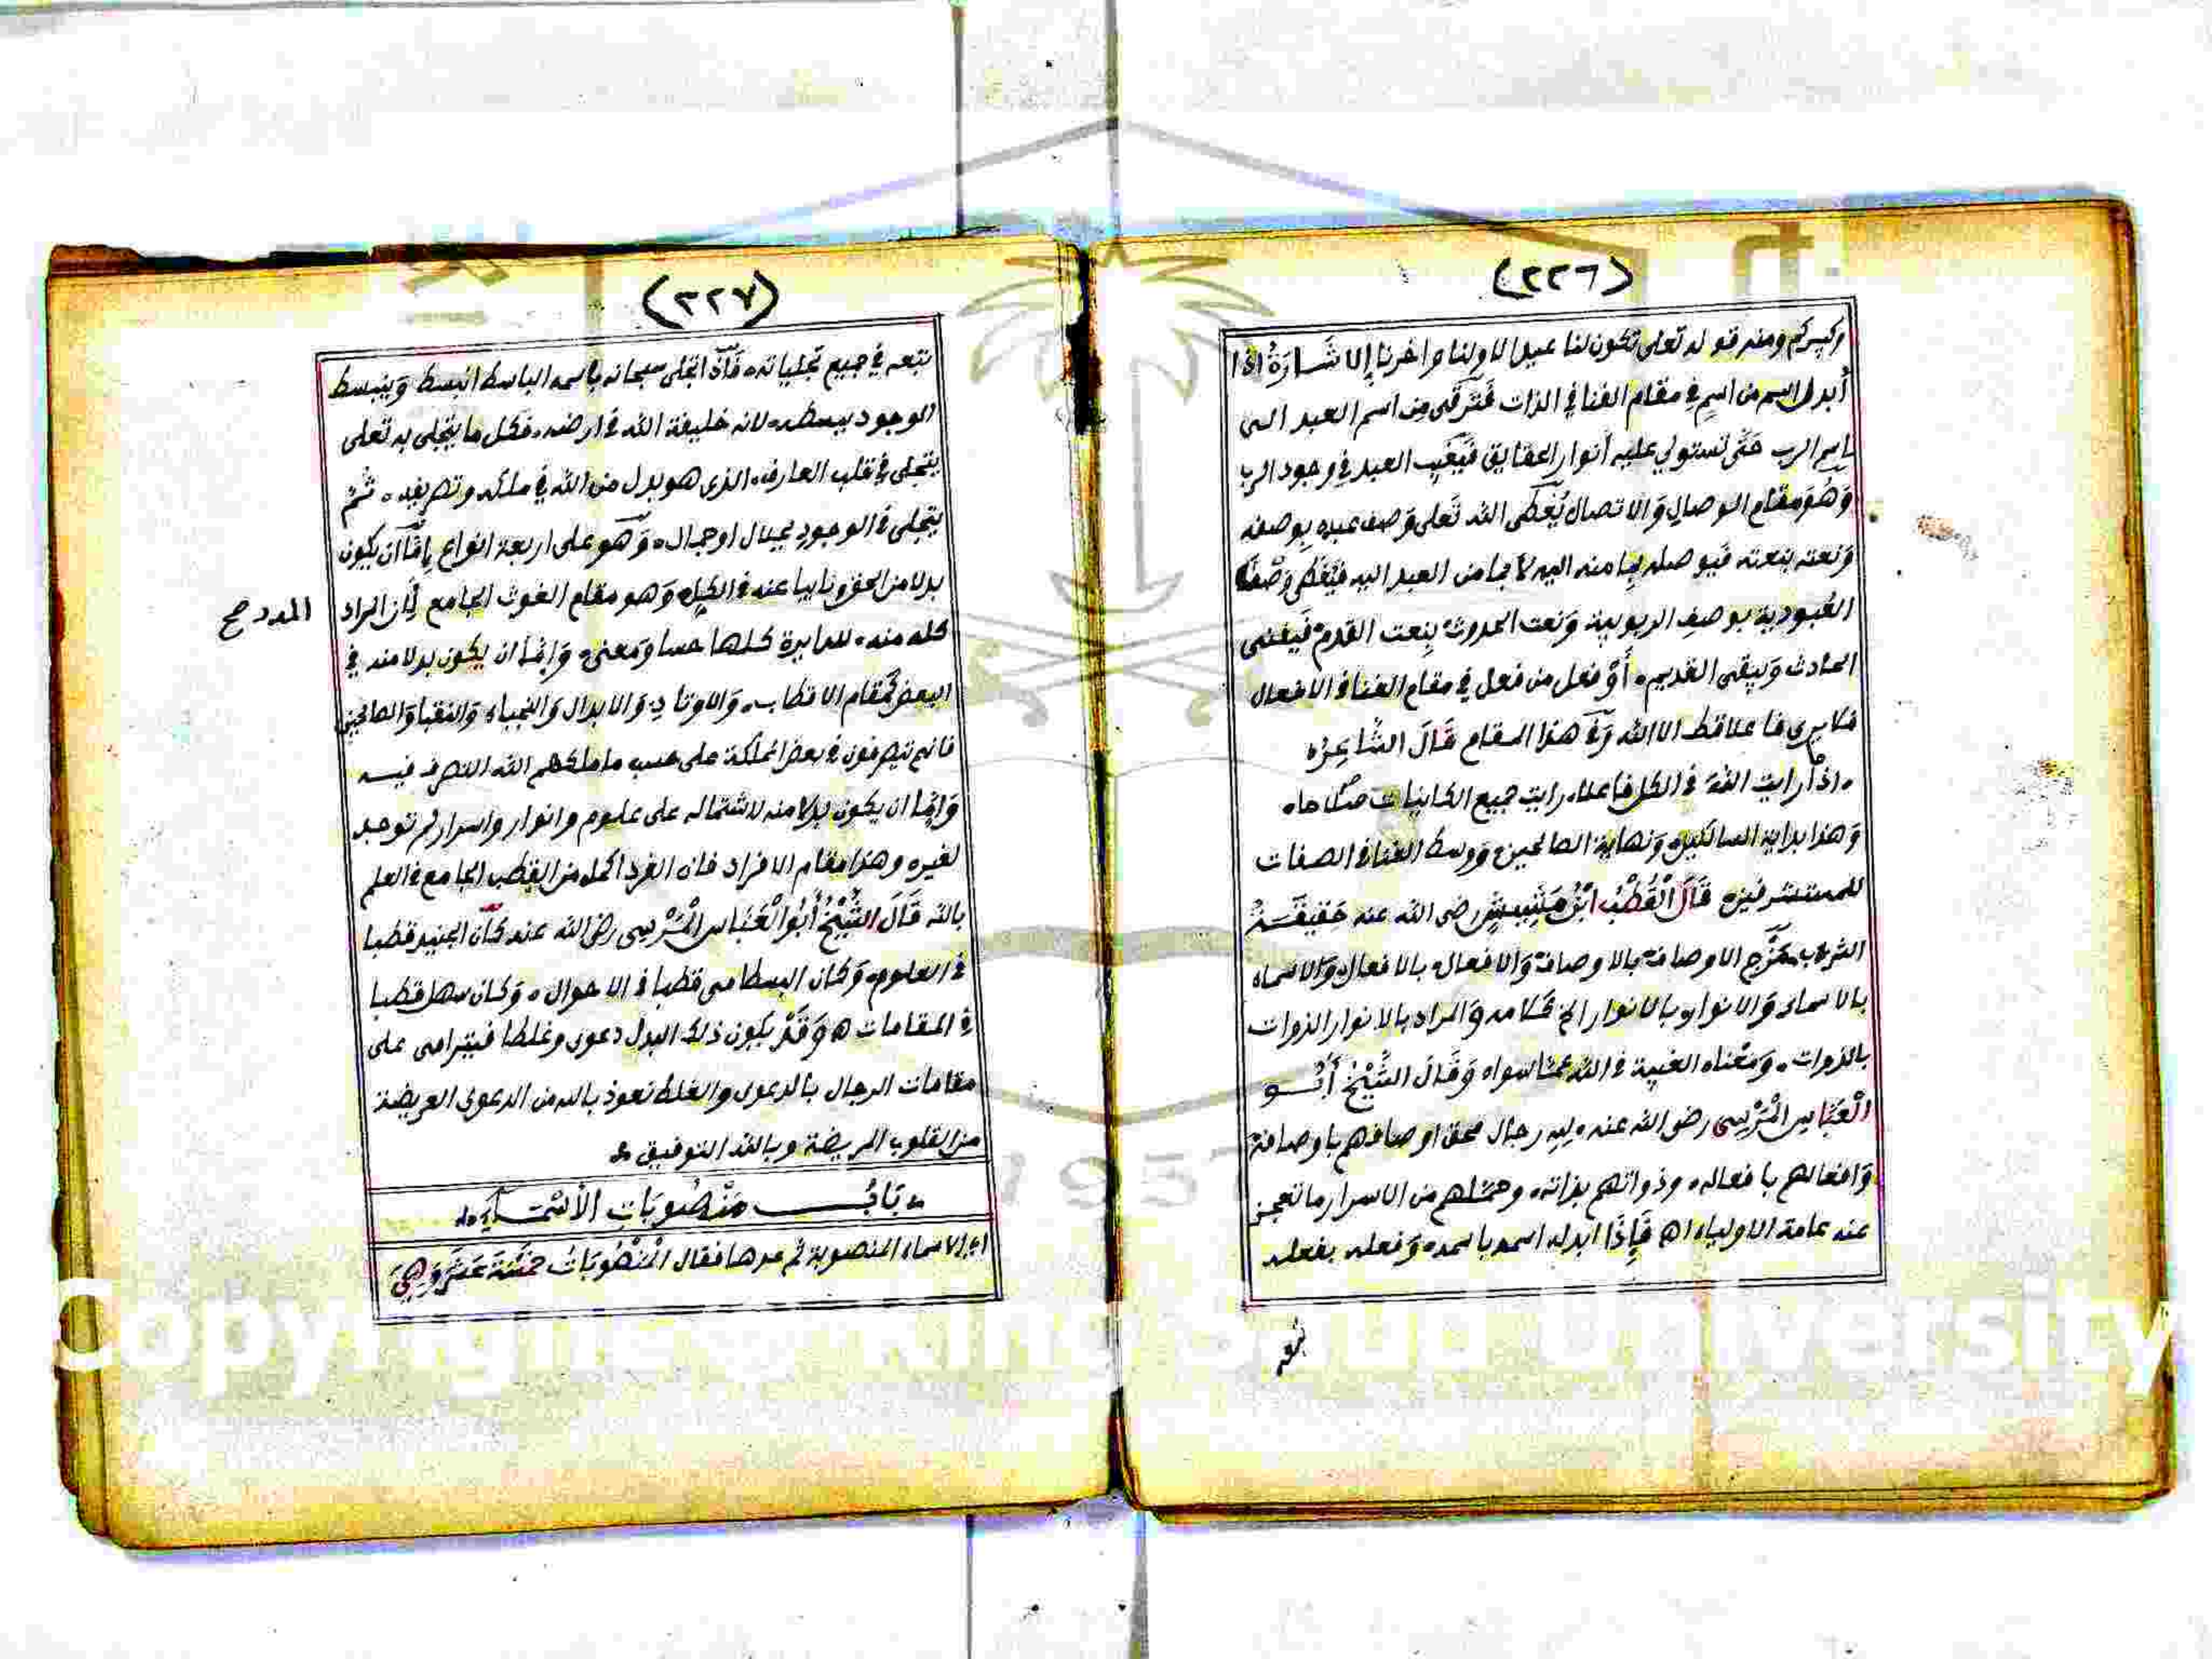 (٢٢٦)
وكبيركم ومنه قوله تعلى تكون لنا عيدا لاولنا واخرنا إلا شَارَةُ اذا
أبدل اسم من اسمٍ في مقام الفنا في الذات فَتَرَقَّى مِن اسم العبد الـى
اسم الرب حَتَّى تستولي عليه أنوار الحقايق فَيَغيب العبد في وجود الرب
وَهُوَ مقام الوصال وَالاتصال يُغَطى الله تَعلى وَصف عبده بِوصفه
وَنعته بنعته فَيوصله بما منه اليه لا بما من العبد اليه فيُغطى وَصْف
العُبودية بوصفِ الربوبية وَنعت الحدوث بِنعت القدم فَيفنى
الحادث وَيبقى القديم ٠ أَوْ فعل من فعل في مقام الفنا في الافعال
فلا يرى فاعلا قط الا الله وَفي هذا المقام قَالَ الشَّاعِرُ ه
٠ اذا رايت اللهَ في الكل فاعلا ٠ رايت جميع الكاينات صلاحا ٠
وَهذا بداية السالكين وَنهاية الصالحين وَوسط الفنا في الصفات
للمستشرفين ه قَالَ الْقُطْبُ ابْنُ مَشِيش رضى الله عنه حَقِيقَـة
الشرب مَزْج الاوصاف بالاوصاف وَالافعال بالافعال وَالاسماء
بالاسماء وَالانوار بالانوار الخ كلامه وَالمراد بالانوار الذوات
بالذوات ٠ وَمَعْناه الغيبة في الله عمَّا سواه وَقَالَ الشَّيْخُ أَبُـو
الْعَبَّاسِ الْمُرْسِى رضى الله عنه ٠ لِلهِ رجال محق اوصافهم باوصافه
وَافعالهم بافعاله ٠ وذواتهم بذاته ٠ وحملهم من الاسرار ما تعجز
عنه عامة الاولياء اه فَإِذَا ابدل اسمه باسمه ٠ وَفعله بفعله
نتبعه
(٢٢٧)
نتبعه في جميع تجلياته ٠ فَاذا تجلى سبحانه باسمه الباسط انبسط وَينبسط
الوجود ببسطه ٠ لانه خليفة الله في ارضه ٠ فكل ما يتجلى به تعلى
يتجلى في قلب العارف ٠ الذى هو بدل من الله في ملكه وتصريفه ٠ ثُمَّ
يتجلى في الوجودِ بجلال او جمال ٠ وَهو على اربعة انواع إِمَّا أن يكون
بدلا من الحق ونايبا عنه في الكل ٠ وَهو مقام الغوث الجامع لِأن المراد
المدد صح
كله منه ٠ للدايرة كلها حسا وَمعنى ٠ وَإِمَّا ان يكون بدلا منه في
البعض كَمقام الاقطاب ٠ وَالاوتادِ وَالابدال وَالنجباء وَالنقبا وَالصالحين
فانهم يتصرفون في بعض المملكة على حسب ما ملكهم الله التصرف فيـه
وَإِمَّا ان يكون بدلا منه لاشتماله على علوم وانوار واسرار لم توجد
لغيره وهذا مقام الافراد فان الفرد اكمل من القطب الجامع في العلم
بالله قَالَ الشَّيْخُ أَبُو الْعَبَّاس الْمُرْسِى رضى الله عنه كَانَ الجنيد قطبا
في العلوم ٠ وَكان البسطامى قطبا في الاحوال ٠ وَكان سهل قطبا
في المقامات ه وَقَدْ يكون ذلك البدل دعوى وغلطا فيترامى على
مقامات الرجال بالدعوى والغلط نعوذ بالله من الدعوى العريضة
من القلوب المريضة وبالله التوفيق
بَابُ مَنْصُوبَاتِ الأَسْمَـاءِ
اى الاسماء المنصوبة ثم عدها فقال الْمَنْصُوبَاتُ خَمْسَةَ عَشَرَ وَهِيَ
Copyright © King Saud University
1957